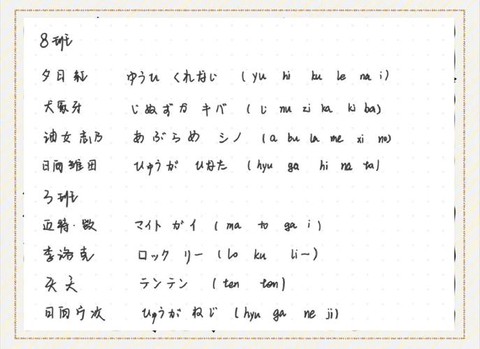 8班
夕日紅 ゆうひ くれない (yu hi ku le na i)
犬塚牙 じぬずか キバ (じ nu zi ka ki ba)
油女志乃 あぶらめ シノ (a bu la me xi no)
日向雏田 ひゅうが ひなた (hyu ga hi na ta)
3班
迈特·凯 マイト ガイ (ma to ga i)
李洛克 ロック リー (lo ku li~)
天天 テンテン (ten ten)
日向宁次 ひゅうが ねじ (hyu ga ne ji)